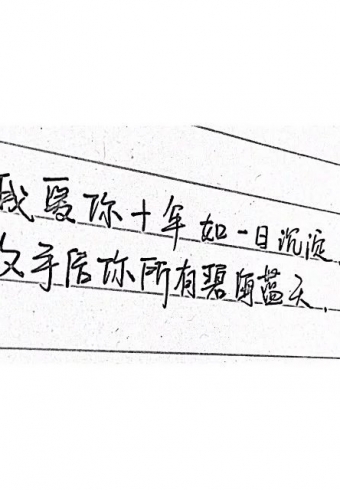 我爱你十年如一日沉淀.
放手后你所有碧海蓝天.